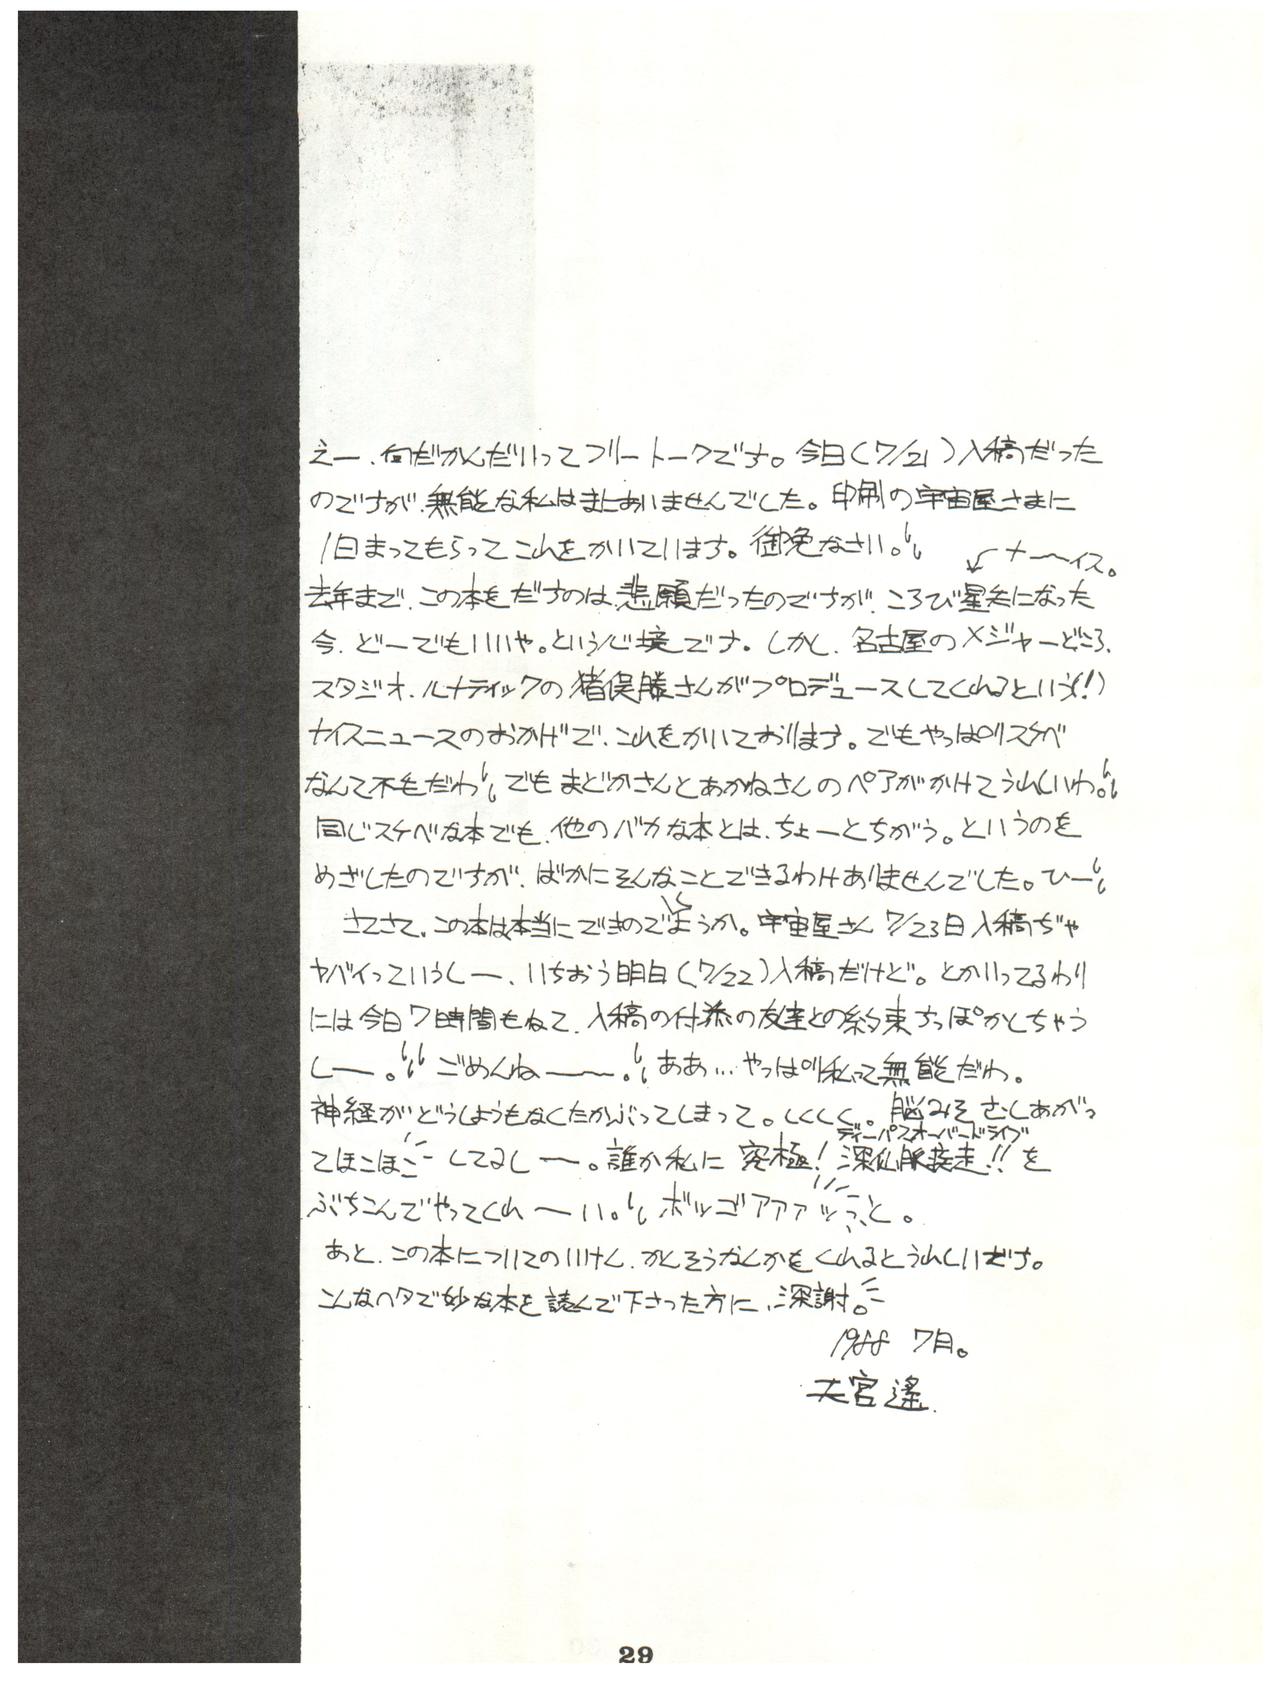 えー、何だかんだいってフリートークです。今日(7/21)入稿だった
のですが、無能な私はまにあいませんでした。印刷の宇宙屋さまに
1日まってもらってこれをかいています。御免なさい。
ナ〜〜イス。
去年まで、この本をだすのは、悲願だったのですが、ころび星矢になった
今、どーでもいいや。という心境です。しかし、名古屋のメジャーどころ、
スタジオ・ルナティックの猪俣勝さんがプロデュースしてくれるという(!)
ナイスニュースのおかげで、これをかいております。でもやっぱりスケベ
なんて不毛だわ でもまどかさんとあかねさんのペアがかけてうれしいわ。
同じスケベな本でも、他のバカな本とは、ちょーとちがう。というのを
めざしたのですが、ばかにそんなことできるわけありませんでした。ひー
さてさて、この本は本当にできのでしょうか。宇宙屋さん7/23日入稿ぢゃ
ヤバイっていうしー、いちおう明日(7/22)入稿だけど。とかいってるわり
には今日7時間もねて、入稿の付添の友達との約束すっぽかしちゃう
しー。ごめんねー〜。ああ…やっぱり私って無能だわ。
神経がどうしようもなくたかぶってしまって。しくしく。脳みそさしあがっ
ディーパスオーバードライブ
てほこほこしてるしー。誰か私に究極!深仙脈疾走!!を
ぶちこんでやってくれ〜い。ボッゴアァァッっと。
あと、この本についてのいけん、かんそうなんかをくれるとうれしいです。
こんなヘタで妙な本を読んで下さった方に、深謝。
1988 7月。
大宮遙.
29